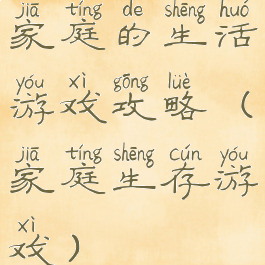 jiā tíng de shēng huó
家庭的生活
yóu xì gōng lüè
游戏攻略（
jiā tíng shēng cún yóu
家庭生存游
xì
戏）